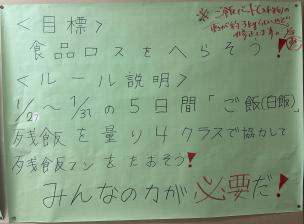 <目標>
食品ロスをへらそう!
<ルール説明>
1/27~1/31の5日間「ご飯(白飯)
残飯を量り4クラスで協力して
残飯マンをたおそう!
みんなの力が必要だ!
※ご飯